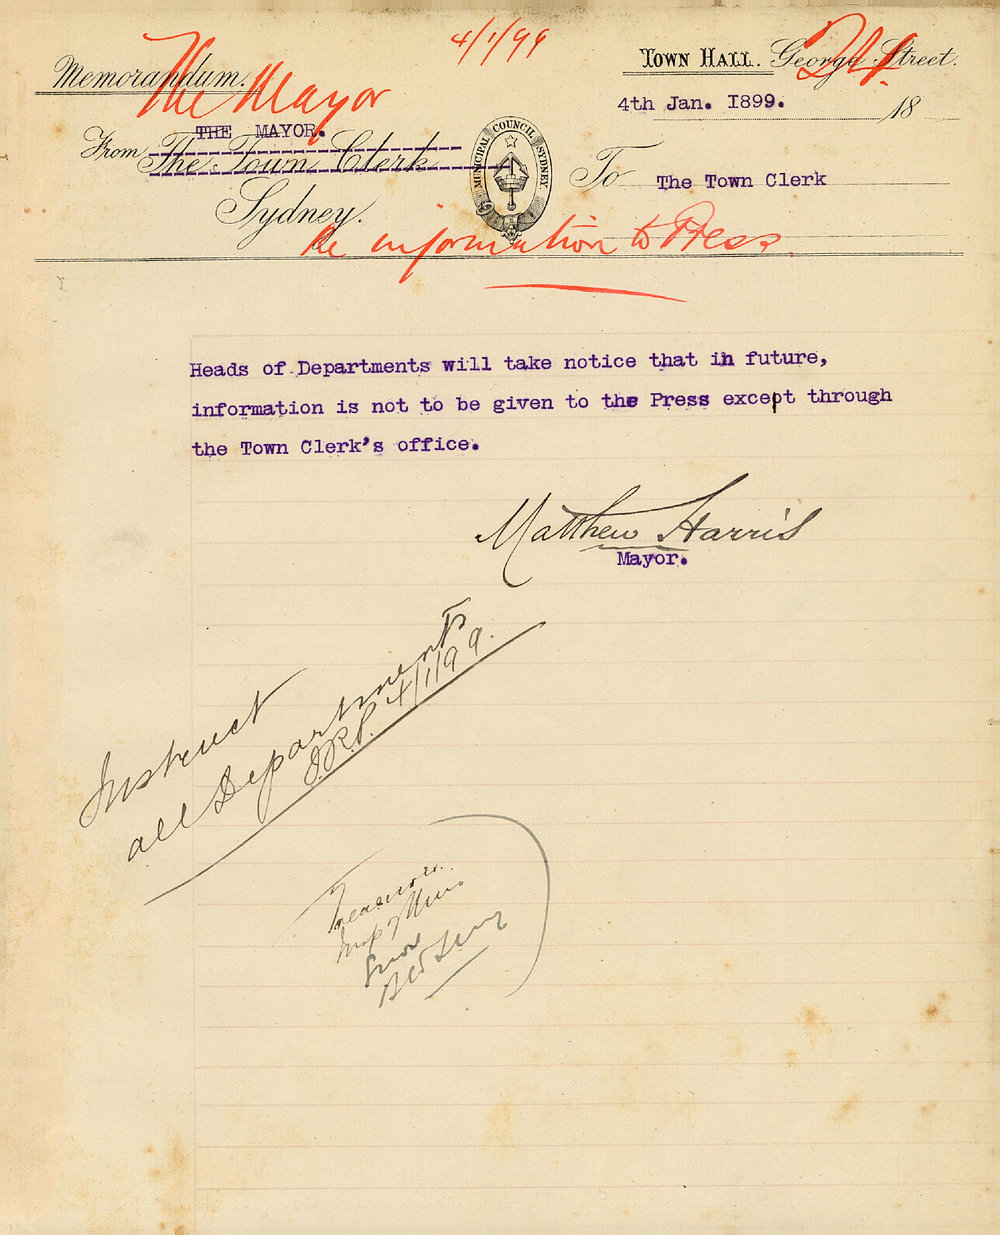 4/1/99
Town Hall. George Street.
Memorandum.
The Mayor
4th Jan. 1899. 18
THE MAYOR.
From The Town Clerk
Sydney.
MUNICIPAL COUNCIL SYDNEY
To The Town Clerk
Re information to Press.
Heads of Departments will take notice that in future,
information is not to be given to the Press except through
the Town Clerk's office.
Matthew Harris
Mayor.
Instruct
all Departments
4/1/99.
Treasurer